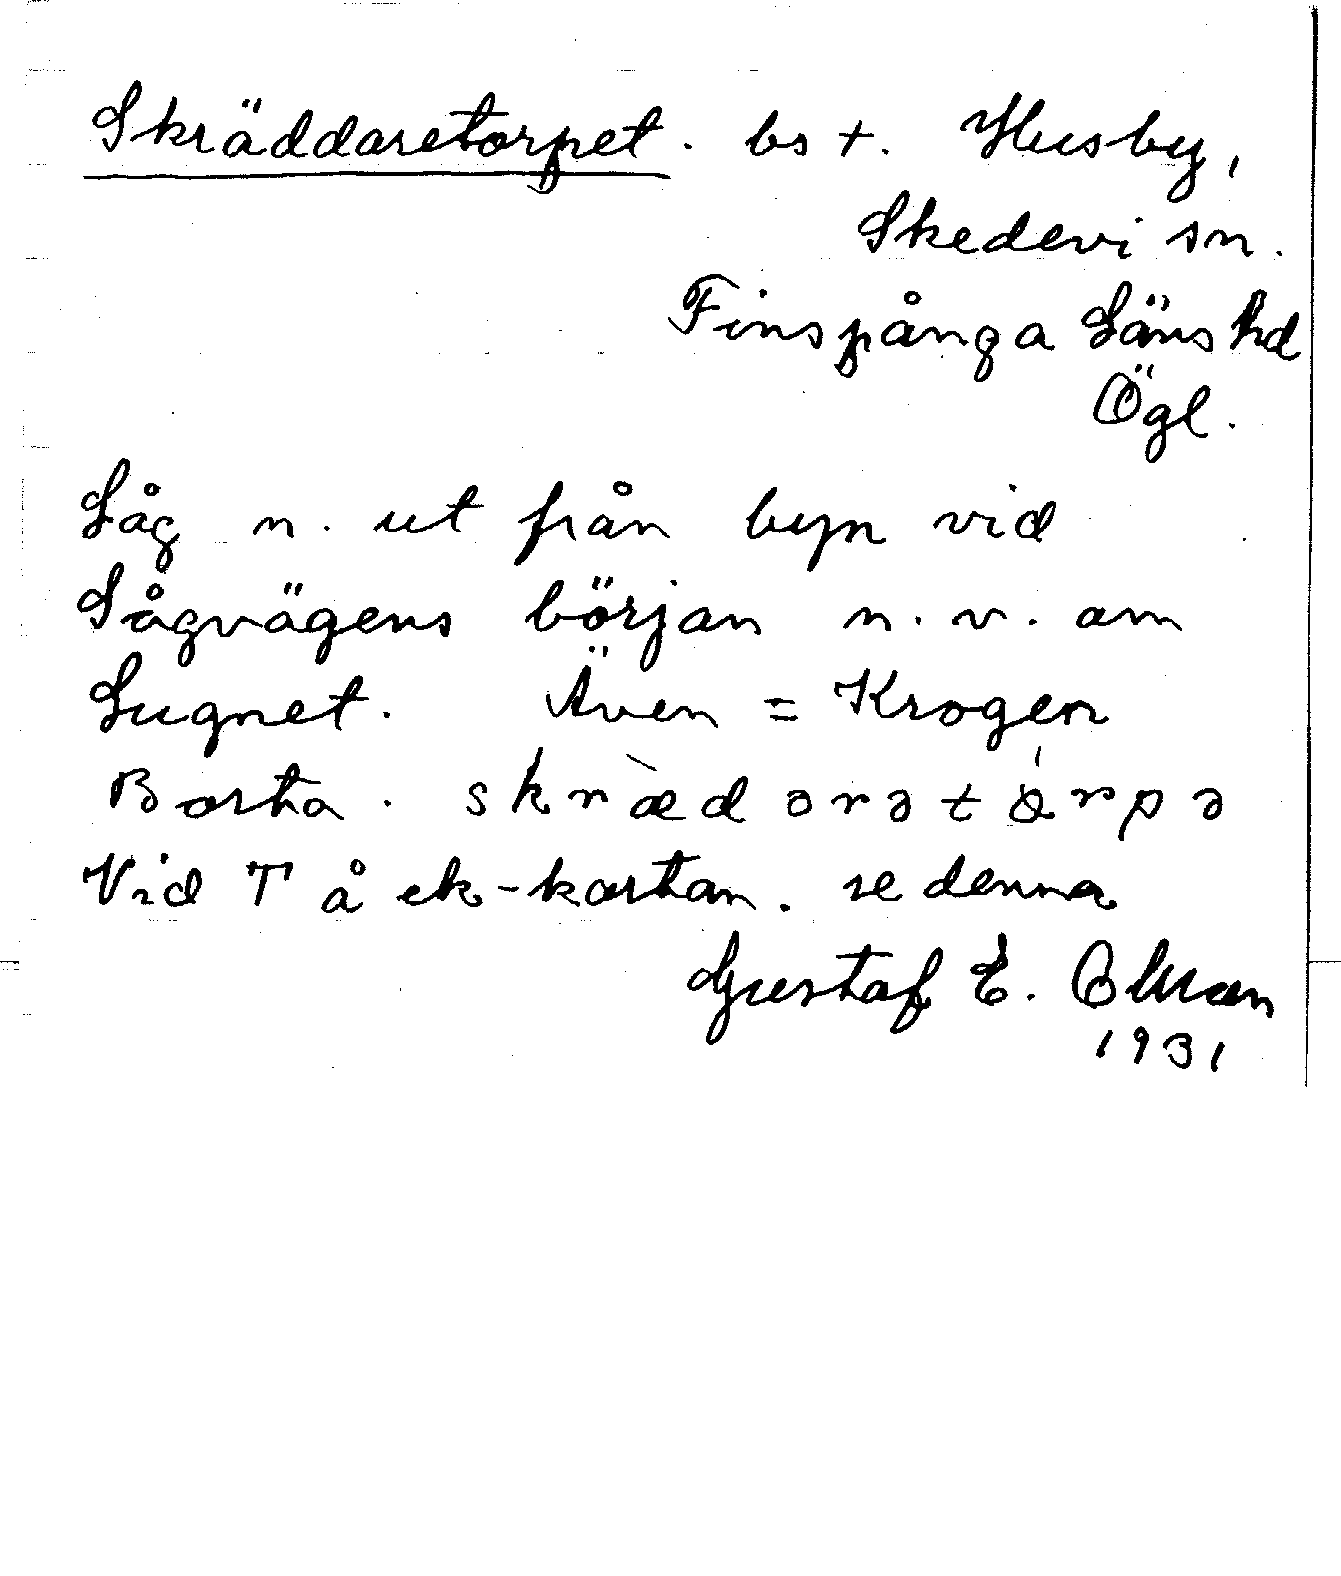 Skräddaretorpet. bst. Husby,
Skedevi sn.
Finspånga Läns hd
Ögl.
Låg n. ut från byn vid
Sågvägens början n.v. om
Lugnet. Även = Krogen
Borta. skrædorətɔrpə
Vid T å ek-kartan. se denna
Gustaf E. Olman
1931